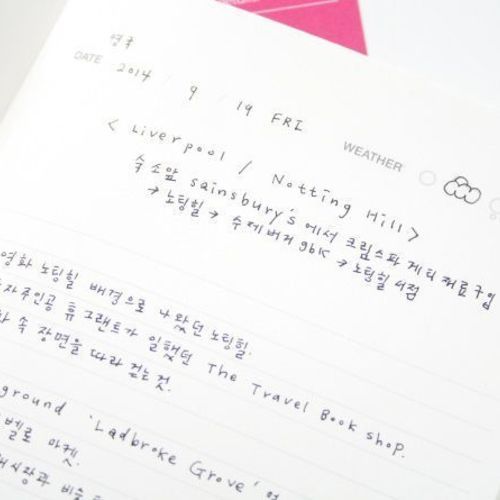 영국
DATE 2014 / 9 / 19 FRI
WEATHER
< Liverpool / Notting Hill >
숙소앞 sainsbury's 에서 크림스파게티재료구입
→ 노팅힐 → 수제버거 gbk → 노팅힐 서점
영화 노팅힐 배경으로 나왔던 노팅힐.
자주인공 휴 그랜트가 일했던 The Travel Book shop.
속 장면을 따라 걷는것.
ground 'Ladbroke Grove'
벨로 마켓.